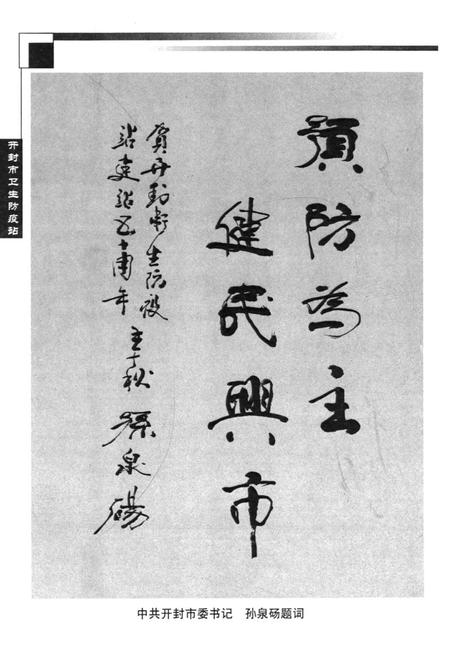 开封市卫生防疫站
預防為主
健民興市
賀开封市衛生防疫
站建站五十周年 壬午秋 孫泉碭
中共开封市委书记 孙泉砀题词